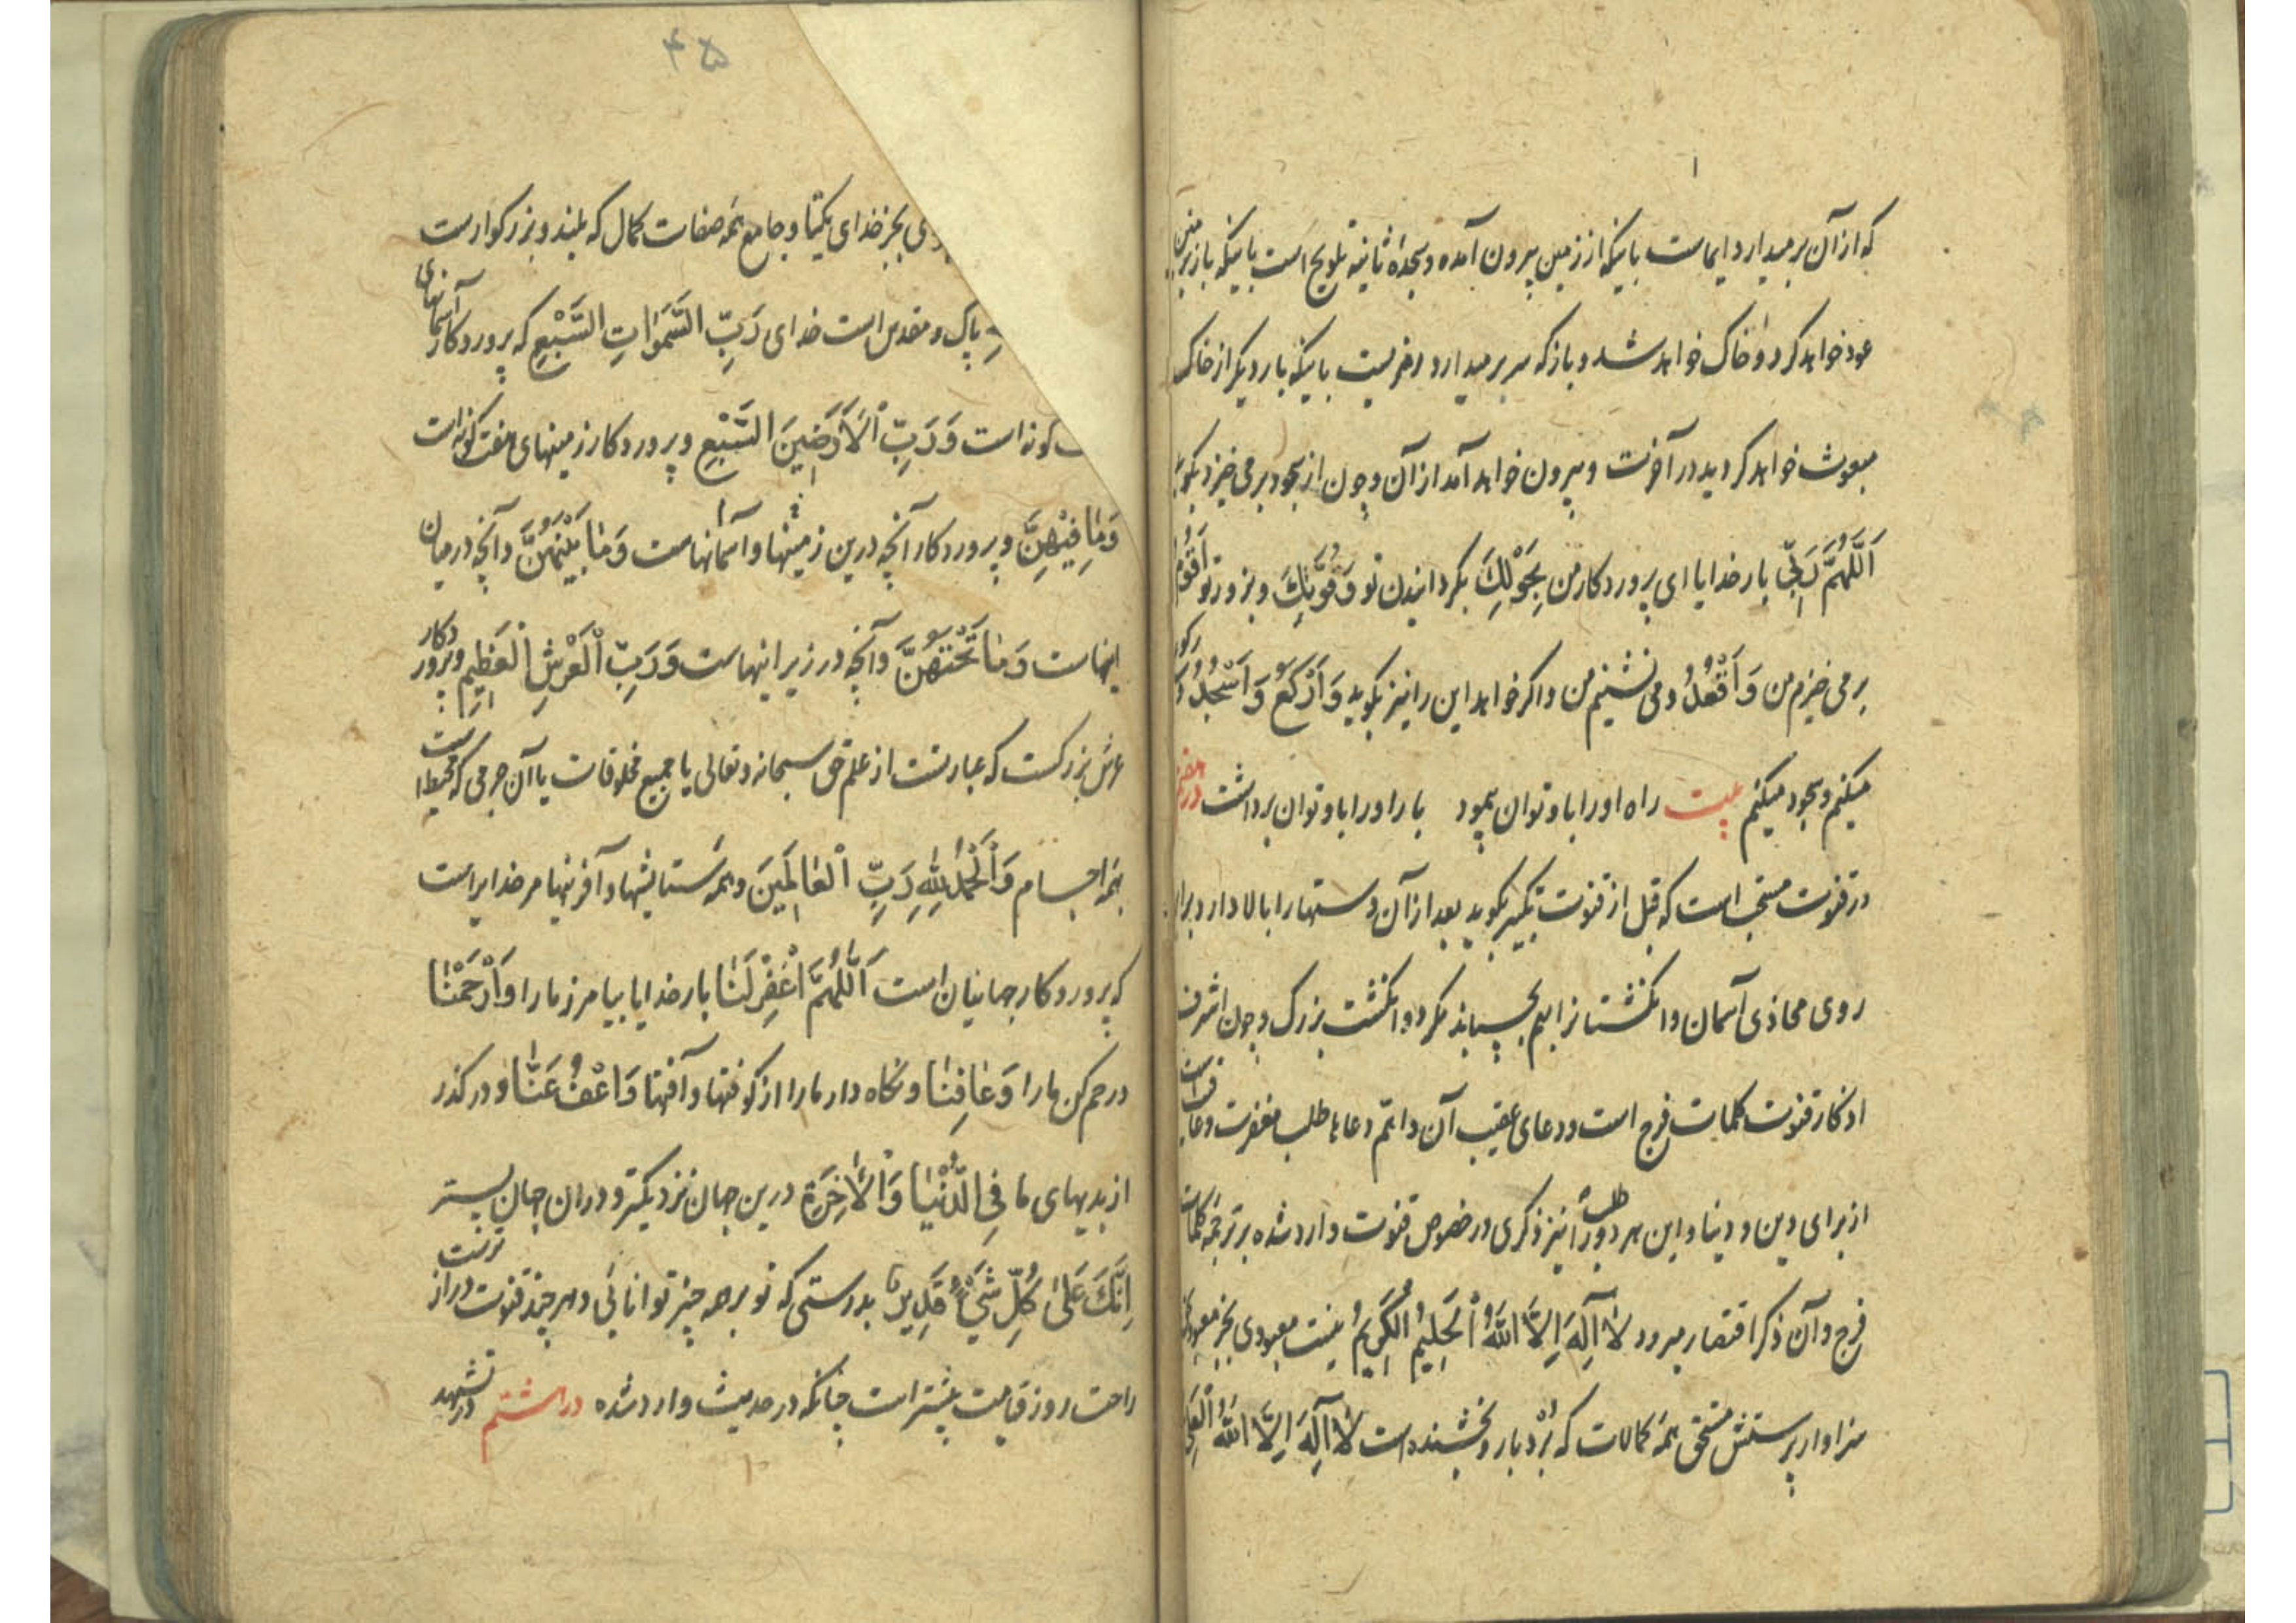 که از آن برمیدارد ایماست باینکه از زمین بیرون آمده و سجدهٔ ثانیه تلویح است باینکه باز بزمین
عود خواهد کرد و خاک خواهد شد و باز که سر برمیدارد رمزیست باینکه بار دیگر از خاک
مبعوث خواهد کردید در آخرت و بیرون خواهد آمد از آن و چون از سجود برمی خیزد بکوید
اَللّٰهُمَّ رَبِّی بار خدایا ای پروردکار من بِحَوْلِكَ بکردانیدن تو وَقُوَّتِكَ و بزور تو اَقُومُ
برمی خیزم من وَاَقْعُدُ و می نشینم من و اکر خواهد این را نیز بکوید وَاَرْكَعُ وَاَسْجُدُ و رکوع
میکنم و سجود میکنم بیت راه او را با و توان پیمود بار او را با و توان برداشت در هفتم
در قنوت مستحب است که قبل از قنوت تکبیر بکوید بعد از آن دستها را بالا دارد برابر
روی محاذی آسمان و انکشتانرا بهم بچسپاند مکر دو انکشت بزرک و چون اشرف
اذکار قنوت کلمات فرج است و دعای عقیب آن و اتم دعاها طلب مغفرت و عافیت است
از برای دین و دنیا و این هر دو طلب را نیز ذکری در خصوص قنوت وارد شده بر ترجمهٔ کلمات
فرج و آن ذکر اقتصار میرود لٰا اِلٰهَ اِلَّا اللّٰهُ الْحَلِیمُ الْكَرِیمُ نیست معبودی بجز معبود
سزاوار پرستش مستحق همهٔ کمالات که بُرْدبار و بخشنده است لٰا اِلٰهَ اِلَّا اللّٰهُ الْعَلِیُّ
۴۵
بجز خدای یکتا و جامع همه صفات کمال که بلند و بزرکوارست
پاک و مقدس است خدای رَبِّ السَّمٰوٰاتِ السَّبْعِ که پروردکار آسمانهای
کونه است وَرَبِّ الْاَرَضِینَ السَّبْعِ و پروردکار زمینهای هفت کونه است
وَمٰا فِیْهِنَّ و پروردکار آنچه درین زمینها و آسمانهاست وَمٰا بَیْنَهُنَّ و آنچه در میان
اینهاست وَمٰا تَحْتَهُنَّ و آنچه در زیر اینهاست وَرَبِّ الْعَرْشِ الْعَظِیمِ و پروردکار
عرش بزرکست که عبارتست از علم حق سبحانه و تعالی یا جمیع مخلوقات یا آن جرمی که محیط است
بهمه اجسام وَالْحَمْدُ لِلّٰهِ رَبِّ الْعٰالَمِینَ و همه ستایشها و آفرینها مر خدایراست
که پروردکار جهانیان است اَللّٰهُمَّ اغْفِرْ لَنٰا بار خدایا بیامرز ما را وَارْحَمْنٰا
و رحم کن ما را وَعٰافِنٰا و نکاه دار ما را از کوفتها و آفتها وَاعْفُ عَنّٰا و در کذر
از بدیهای ما فِی الدُّنْیٰا وَالْاٰخِرَةِ درین جهان نزدیکتر و دران جهان پستر
اِنَّكَ عَلیٰ كُلِّ شَیْءٍ قَدِیرٌ بدرستی که تو بر همه چیز توانائی و هر چند قنوت دراز ترست
راحت روز قیامت بیشتر است چنانکه در حدیث وارد شده در هشتم در تشهد